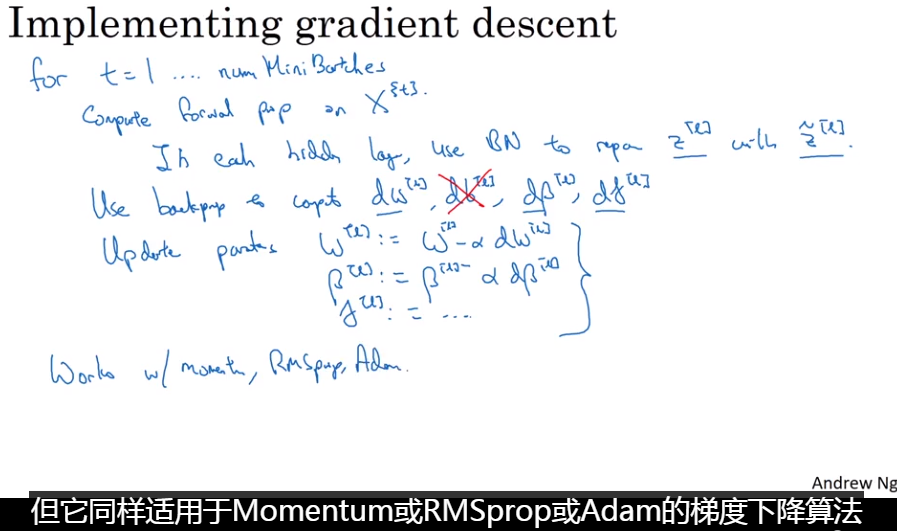 Implementing gradient descent
for t = 1 .... num Mini Batches
Compute forward prop on X^{t}.
In each hidden lay, use BN to repa z^[l] with z̃^[l].
Use backprop to compt dw^[l], db^[l], dβ^[l], dγ^[l]
Update parts W^[l] := W^[l] - α dW^[l]
β^[l] := β^[l] - α dβ^[l]
γ^[l] := ....
Works w/ moment, RMSprop, Adam.
Andrew Ng
但它同样适用于Momentum或RMSprop或Adam的梯度下降算法